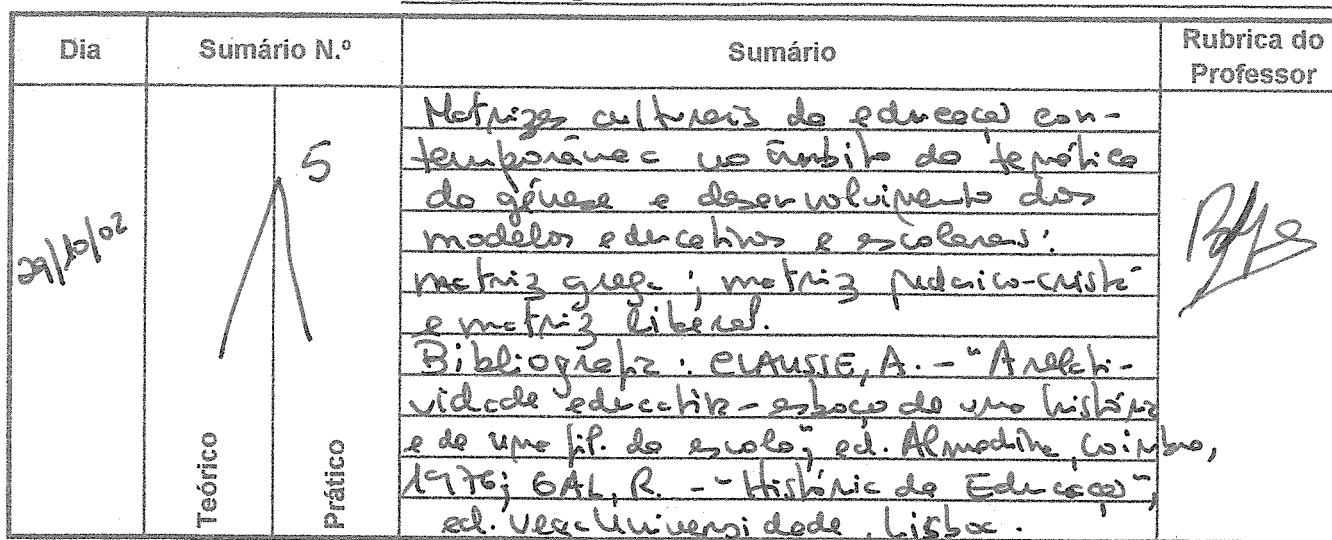 Dia Sumário N.º Sumário Rubrica do Professor
29/10/02
5
Teórico
Prático
Matrizes culturais da educação con-
temporânea no âmbito da temática
da génese e desenvolvimento dos
modelos educativos e escolares:
matriz grega; matriz judaico-cristã
e matriz liberal.
Bibliografia: CLAUSSE, A. - "A relati-
vidade educativa - esboço de uma história
e de uma fil. da escola", ed. Almedina, Coimbra,
1976; GAL, R. - "História da Educação",
ed. Vega Universidade, Lisboa.